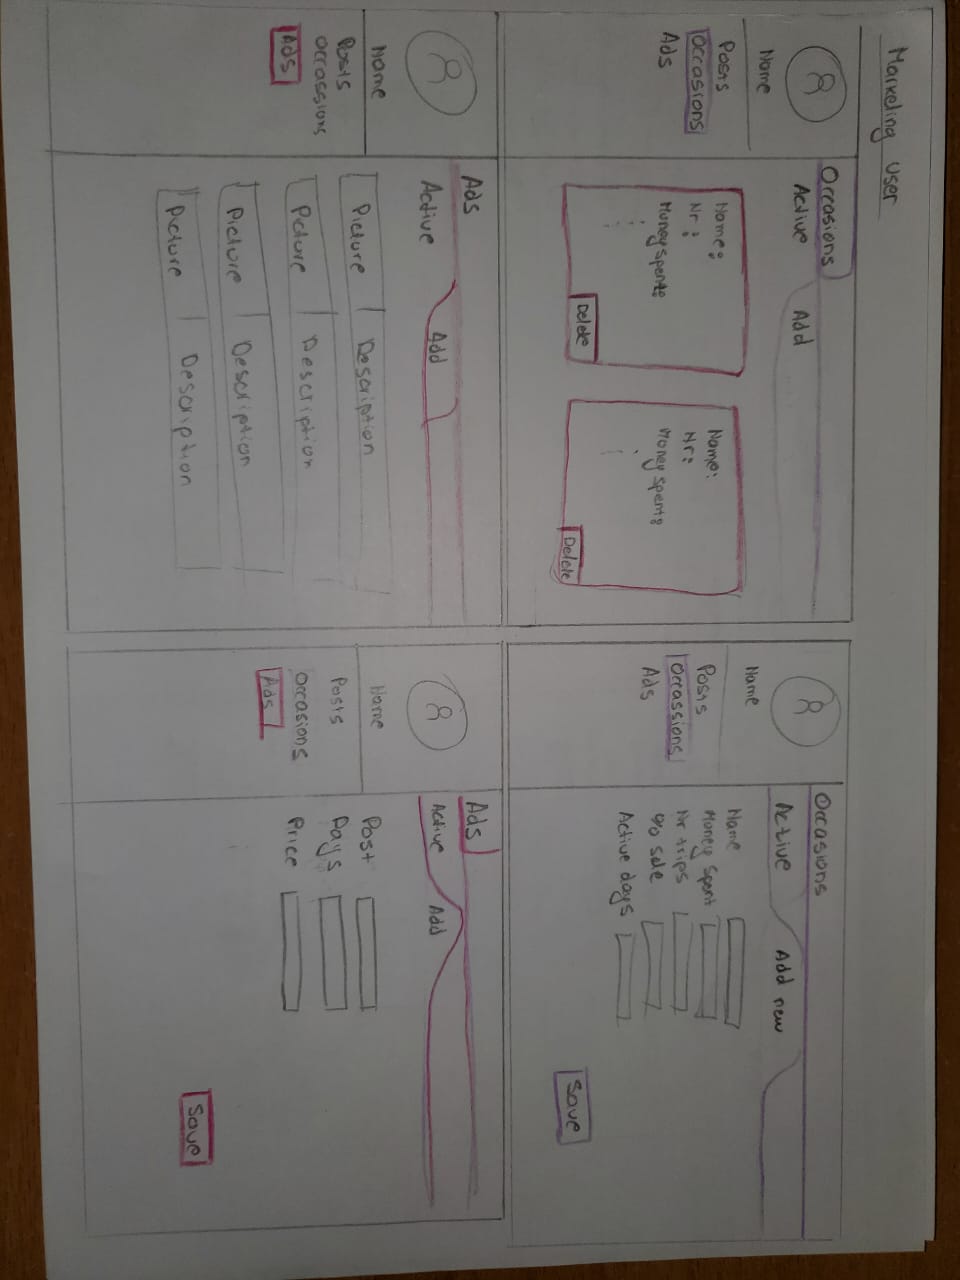 Marketing User
Name
Posts
Occasions
Ads
Occasions
Active Add
Name:
Nr :
Money spent:
Delete
Name:
Nr:
Money spent:
Delete
Name
Posts
Occassions
Ads
Occasions
Active Add new
Name
Money spent
Nr trips
% sale
Active days
Save
Name
Posts
Occassions
Ads
Ads
Active Add
Picture Description
Picture Description
Picture Description
Picture Description
Name
Posts
Occasions
Ads
Ads
Active Add
Post
Days
Price
Save